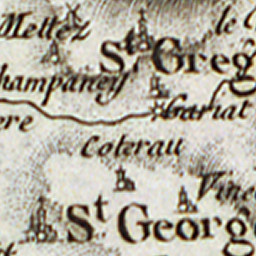 Mettez
le
St. Greg
hampaney
Gariat
ere
Coterau
Vince
St George